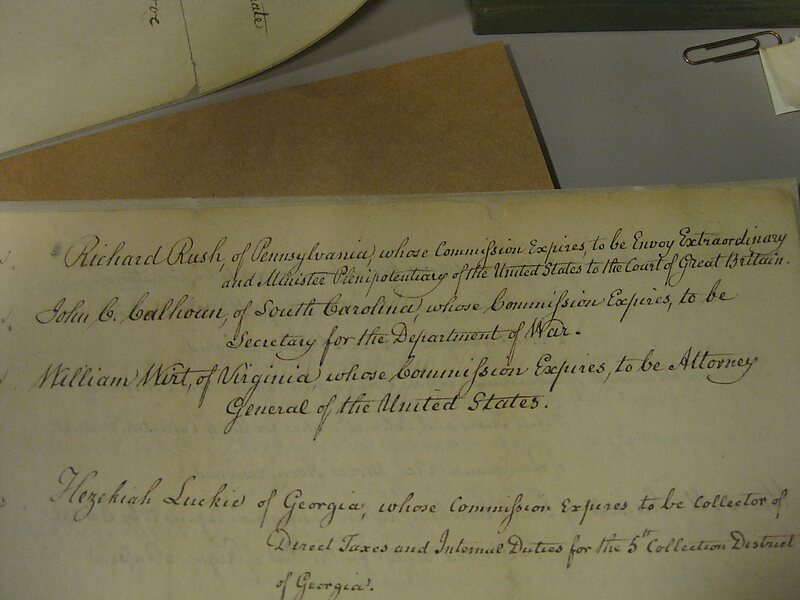 ate
Richard Rush, of Pennsylvania, whose Commission Expires, to be Envoy Extraordinary
and Minister Plenipotentiary of the United States to the Court of Great Britain.
John C. Calhoun, of South Carolina, whose Commission Expires, to be
Secretary for the Department of War.
William Wirt, of Virginia, whose Commission Expires, to be Attorney
General of the United States.
Hezekiah Luckie of Georgia, whose Commission Expires to be Collector of
Direct Taxes and Internal Duties for the 5th Collection District
of Georgia.